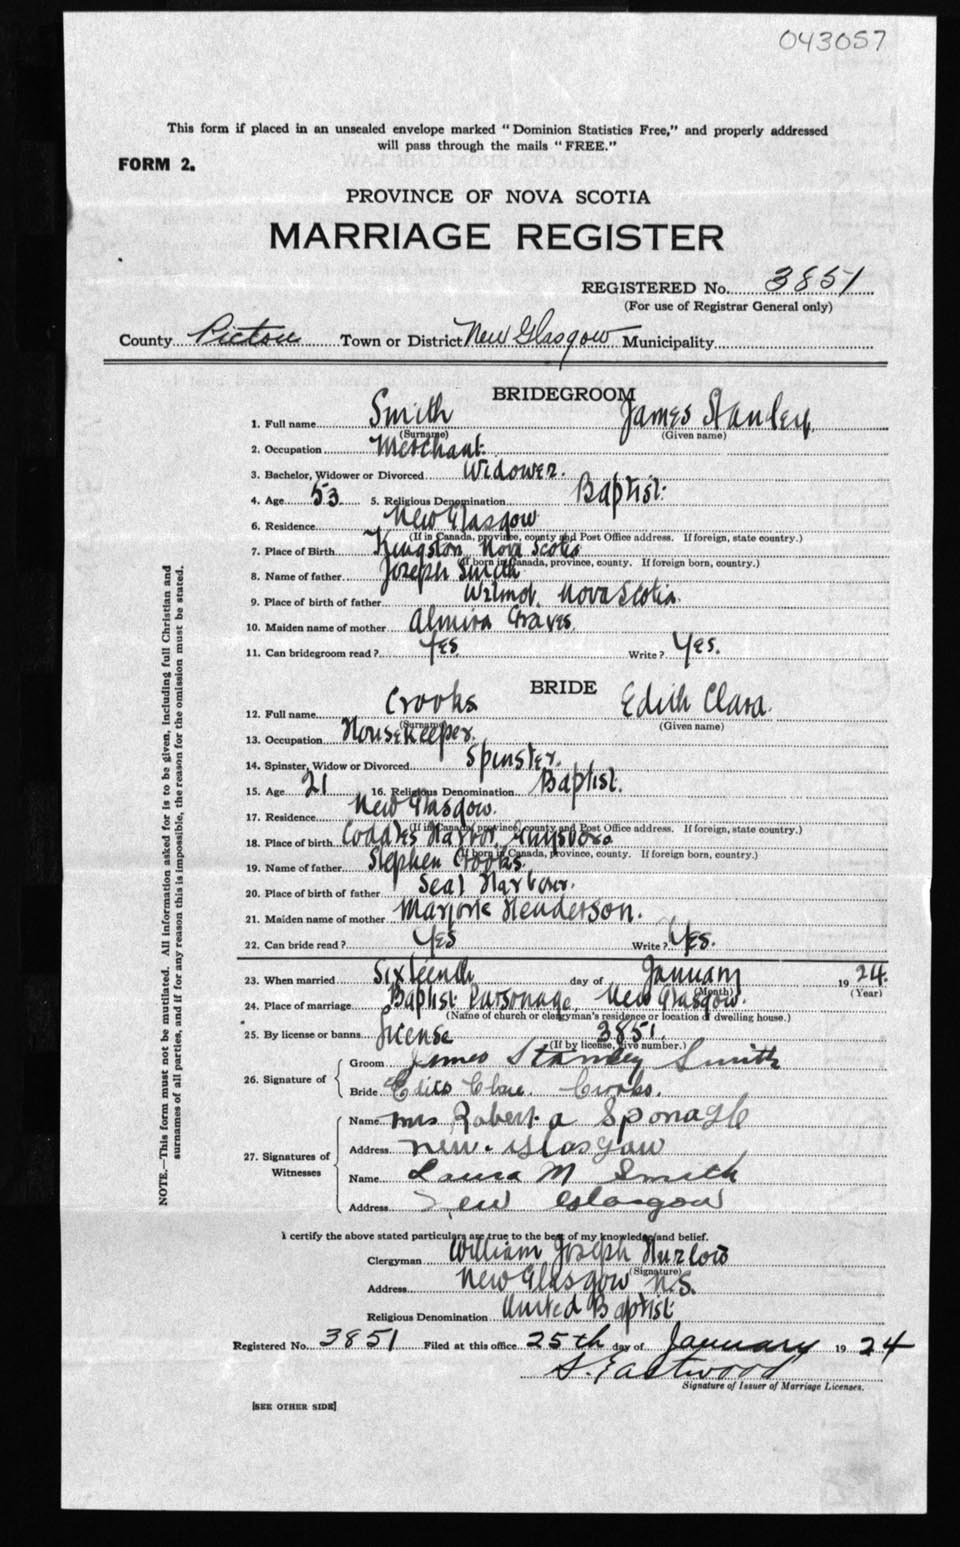 043057
This form if placed in an unsealed envelope marked "Dominion Statistics Free," and properly addressed
will pass through the mails "FREE."
FORM 2.
PROVINCE OF NOVA SCOTIA
MARRIAGE REGISTER
REGISTERED No. 3851
(For use of Registrar General only)
County Pictou Town or District New Glasgow Municipality
BRIDEGROOM
1. Full name Smith James Stanley
(Surname) (Given name)
2. Occupation Merchant.
3. Bachelor, Widower or Divorced Widower.
4. Age 53 5. Religious Denomination Baptist.
6. Residence New Glasgow
(If in Canada, province, county and Post Office address. If foreign, state country.)
7. Place of Birth Kingston Nova Scotia
(If born in Canada, province, county. If foreign born, country.)
8. Name of father Joseph Smith
9. Place of birth of father Wilmot, Nova Scotia.
10. Maiden name of mother Almira Graves
11. Can bridegroom read? Yes Write? Yes.
BRIDE
12. Full name Crooks Edith Clara.
(Surname) (Given name)
13. Occupation Housekeeper.
14. Spinster, Widow or Divorced Spinster.
15. Age 21 16. Religious Denomination Baptist.
17. Residence New Glasgow.
(If in Canada, province, county and Post Office address. If foreign, state country.)
18. Place of birth Harbor,
(If born in Canada, province, county. If foreign born, country.)
19. Name of father Stephen Crooks.
20. Place of birth of father Seal Harbour.
21. Maiden name of mother Marjorie Henderson.
22. Can bride read? Yes Write? Yes.
23. When married Sixteenth day of January 1924.
(Month) (Year)
24. Place of marriage Baptist Parsonage, New Glasgow.
(Name of church or clergyman's residence or location of dwelling house.)
25. By license or banns License 3851.
(If by license, give number.)
26. Signature of
Groom James Stanley Smith
Bride Edith Clara Crooks.
27. Signatures of Witnesses
Name Mrs Robert A Sponagle
Address New Glasgow
Name Laura M Smith
Address New Glasgow
I certify the above stated particulars are true to the best of my knowledge and belief.
Clergyman William Joseph
(Signature)
Address New Glasgow N.S.
Religious Denomination United Baptist
Registered No. 3851 Filed at this office 25th day of January 1924
S. Eastwood
Signature of Issuer of Marriage Licenses.
[SEE OTHER SIDE]
NOTE.—This form must not be mutilated. All information asked for is to be given, including full Christian and
surnames of all parties, and if for any reason this is impossible, the reason for the omission must be stated.